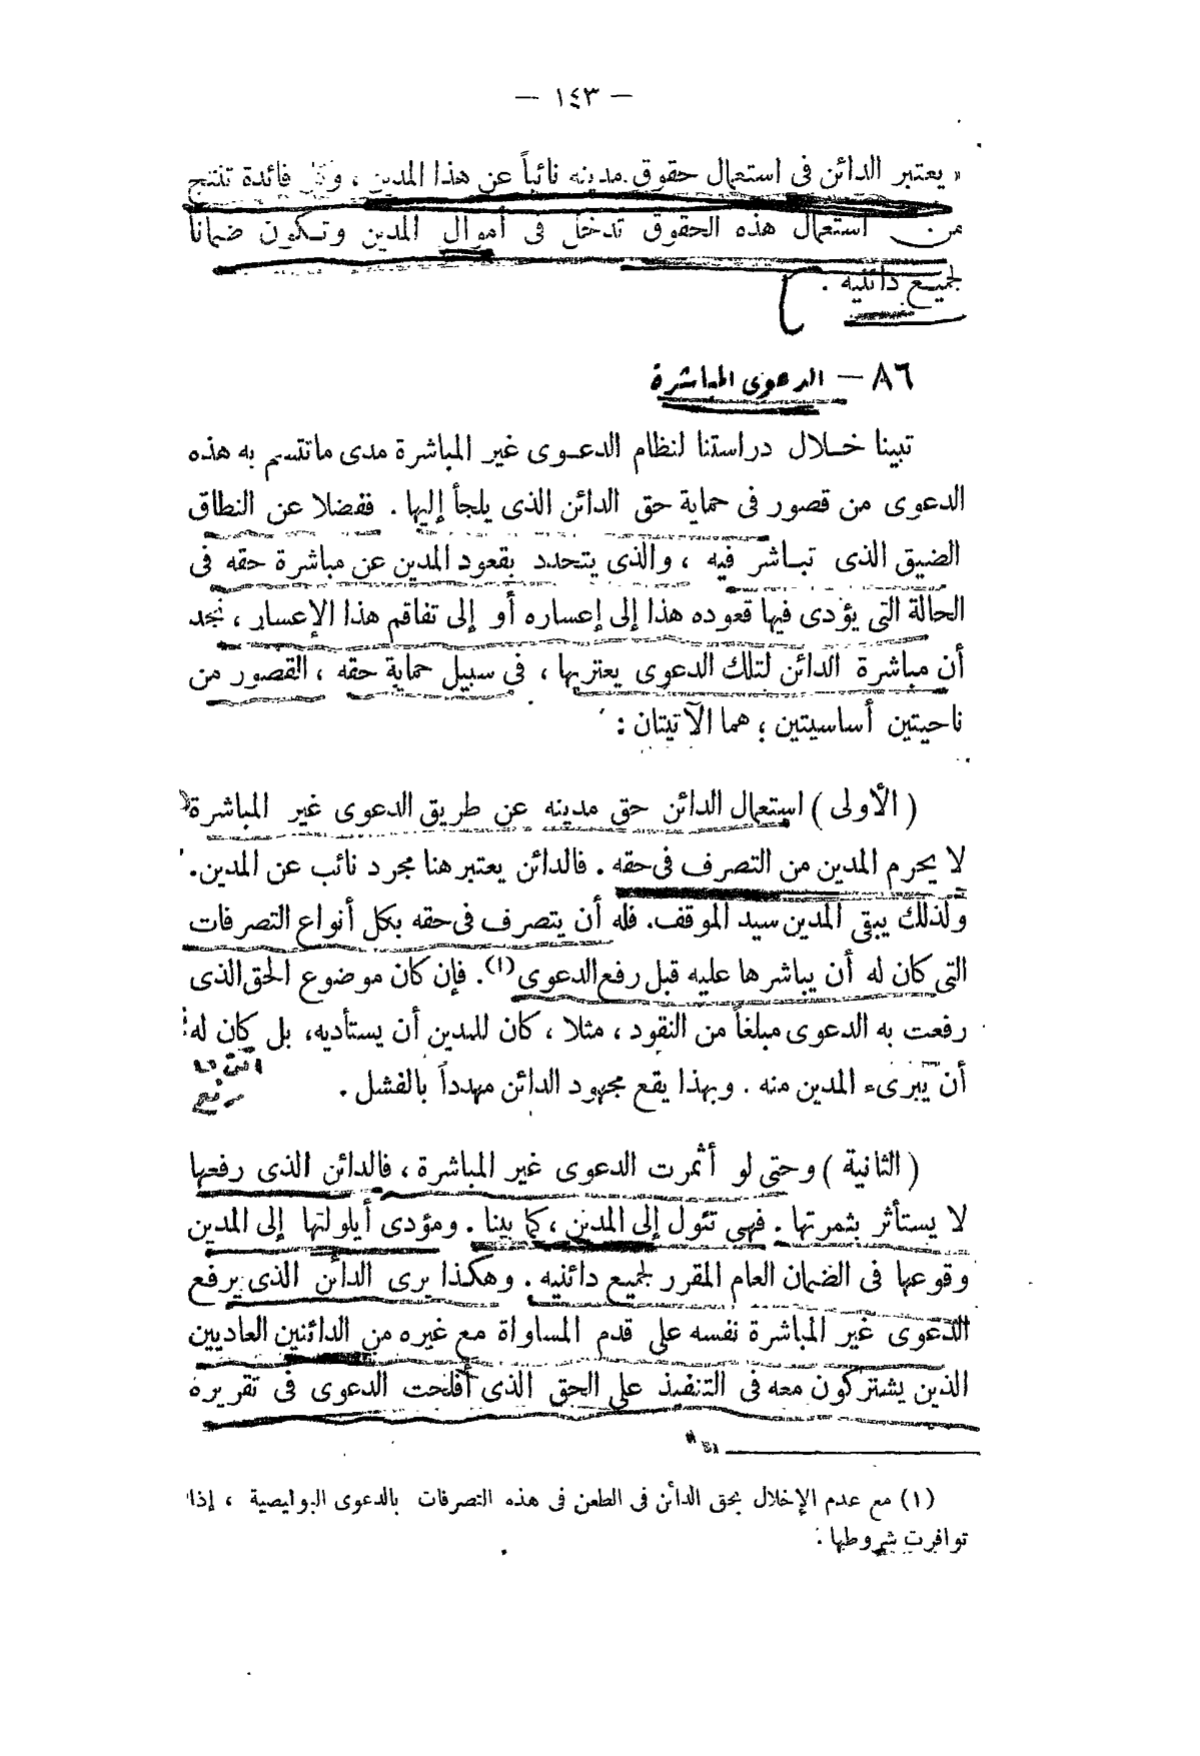 — ١٤٣ —
« يعتبر الدائن فى استعمال حقوق مدينه نائباً عن هذا المدين ، وكل فائدة تنتج
من استعمال هذه الحقوق تدخل فى أموال المدين وتكون ضماناً
لجميع دائنيه .
٨٦ — الدعوى المباشرة
تبينا خلال دراستنا لنظام الدعوى غير المباشرة مدى ماتتسم به هذه
الدعوى من قصور فى حماية حق الدائن الذى يلجأ إليها . ففضلا عن النطاق
الضيق الذى تباشر فيه ، والذى يتحدد بقعود المدين عن مباشرة حقه فى
الحالة التى يؤدى فيها قعوده هذا إلى إعساره أو إلى تفاقم هذا الإعسار ، نجد
أن مباشرة الدائن لتلك الدعوى يعتريها ، فى سبيل حماية حقه ، القصور من
ناحيتين أساسيتين ؛ هما الآتيتان :
( الأولى ) استعمال الدائن حق مدينه عن طريق الدعوى غير المباشرة
لا يحرم المدين من التصرف فى حقه . فالدائن يعتبر هنا مجرد نائب عن المدين.
ولذلك يبقى المدين سيد الموقف. فله أن يتصرف فى حقه بكل أنواع التصرفات
التى كان له أن يباشرها عليه قبل رفع الدعوى (١). فإن كان موضوع الحق الذى
رفعت به الدعوى مبلغاً من النقود ، مثلا ، كان للمدين أن يستأديه، بل كان له
أن يبرىء المدين منه . وبهذا يقع مجهود الدائن مهدداً بالفشل .
( الثانية ) وحتى لو أثمرت الدعوى غير المباشرة ، فالدائن الذى رفعها
لا يستأثر بثمرتها . فهى تئول إلى المدين ، كما بينا . ومؤدى أيلولتها إلى المدين
وقوعها فى الضمان العام المقرر لجميع دائنيه . وهكذا يرى الدائن الذى يرفع
الدعوى غير المباشرة نفسه على قدم المساواة مع غيره من الدائنين العاديين
الذين يشتركون معه فى التنفيذ على الحق الذى أفلحت الدعوى فى تقريره
(١) مع عدم الإخلال بحق الدائن فى الطعن فى هذه التصرفات بالدعوى البوليصية ، إذا
توافرت شروطها .